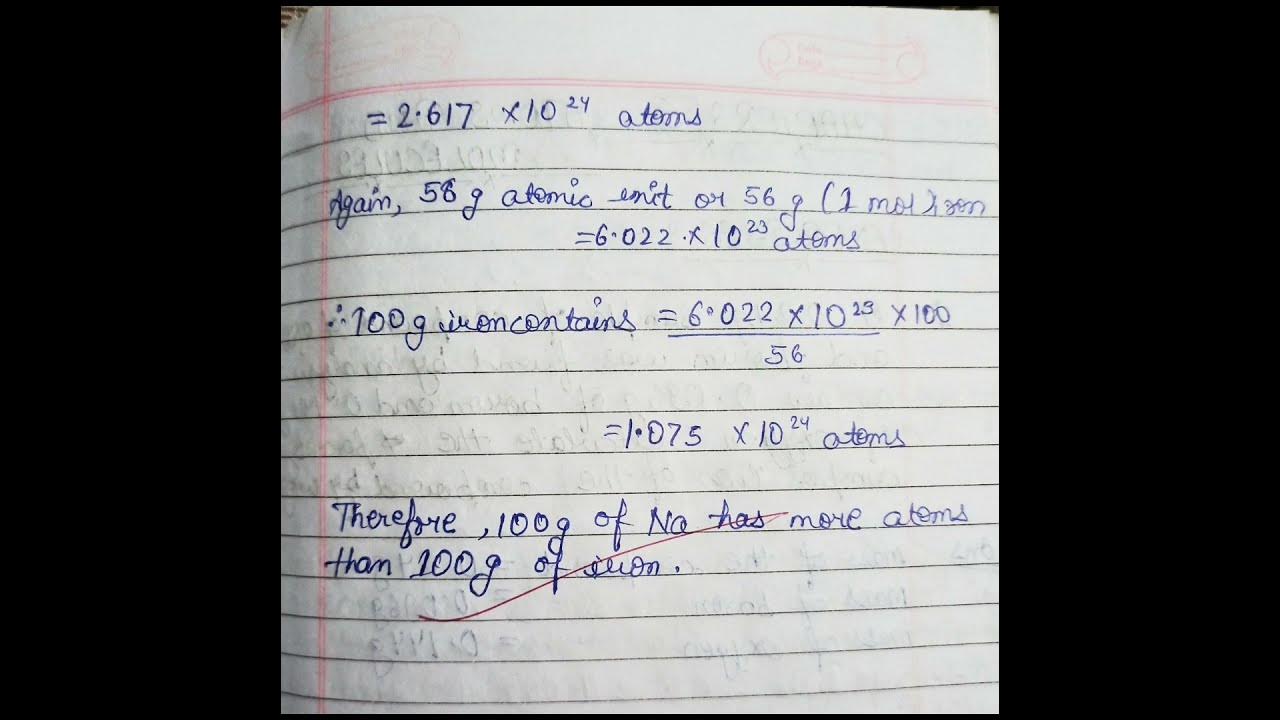 = 2.617 ×10²⁴ atoms
Again, 56 g atomic unit or 56 g (1 mol) iron
= 6.022 × 10²³ atoms
∴ 100 g iron contains = 6.022 × 10²³ × 100
56
= 1.075 × 10²⁴ atoms
Therefore, 100g of Na has more atoms
than 100g of iron.